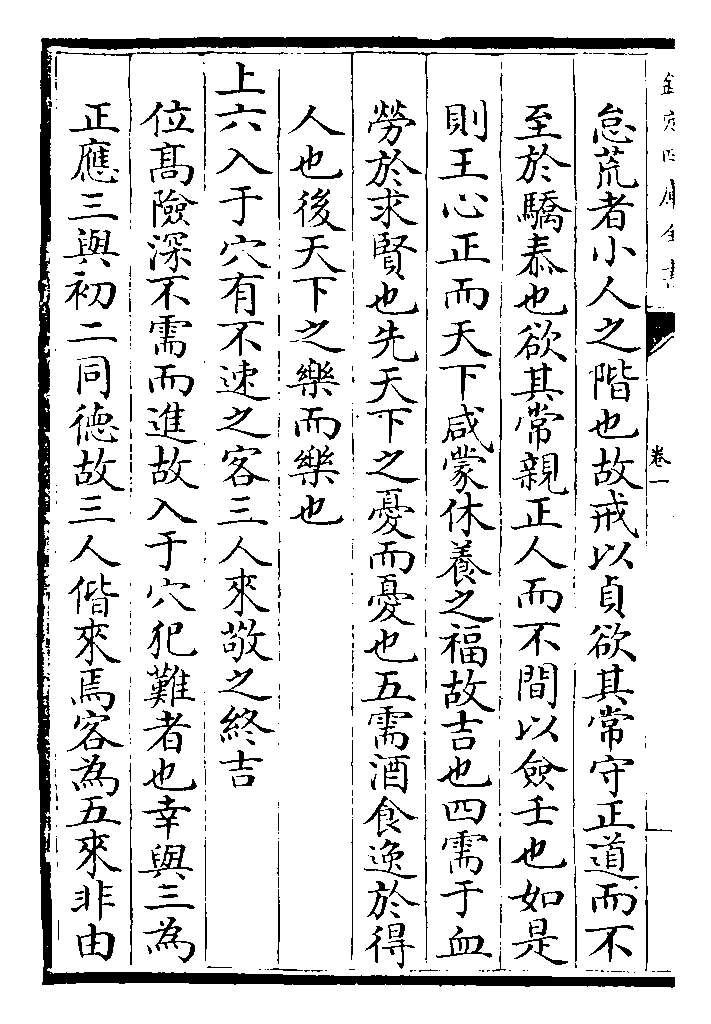 欽定四庫全書
卷一
怠荒者小人之階也故戒以貞欲其常守正道而不
至於驕泰也欲其常親正人而不間以僉壬也如是
則王心正而天下咸蒙休養之福故吉也四需于血
勞於求賢也先天下之憂而憂也五需酒食逸於得
人也後天下之樂而樂也
上六入于穴有不速之客三人來敬之終吉
位髙險深不需而進故入于穴犯難者也幸與三為
正應三與初二同徳故三人偕來焉客為五來非由